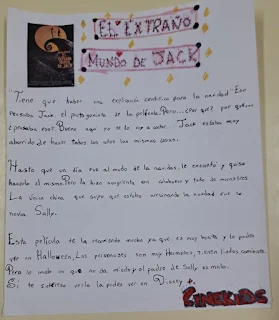 EL EXTRAÑO
MUNDO DE JACK
"Tiene que haber una explicación científica para la navidad" Eso
pensaba Jack el protagonista de la película. Pero... ¿Por qué? por qué
pensaba eso?. Bueno aquí no te lo voy a contar. Jack estaba muy
aburrido de hacer todos los años las mismas cosas.
Hasta que un día fue al mundo de la navidad, le encantó y quiso
hacerlo el mismo. Pero la hizo con
y todo de monstruos.
La única chica que supo que estaba arruinando la navidad fue su
novia Sally.
Esta película te la recomiendo mucho ya que es muy bonita y la podés
ver en Halloween, Los personajes son muy
Pero lo malo es que no da miedo y el padre de Sally es malo.
Si te interesa verla la podés ver en Disney +.
CINEKIDS